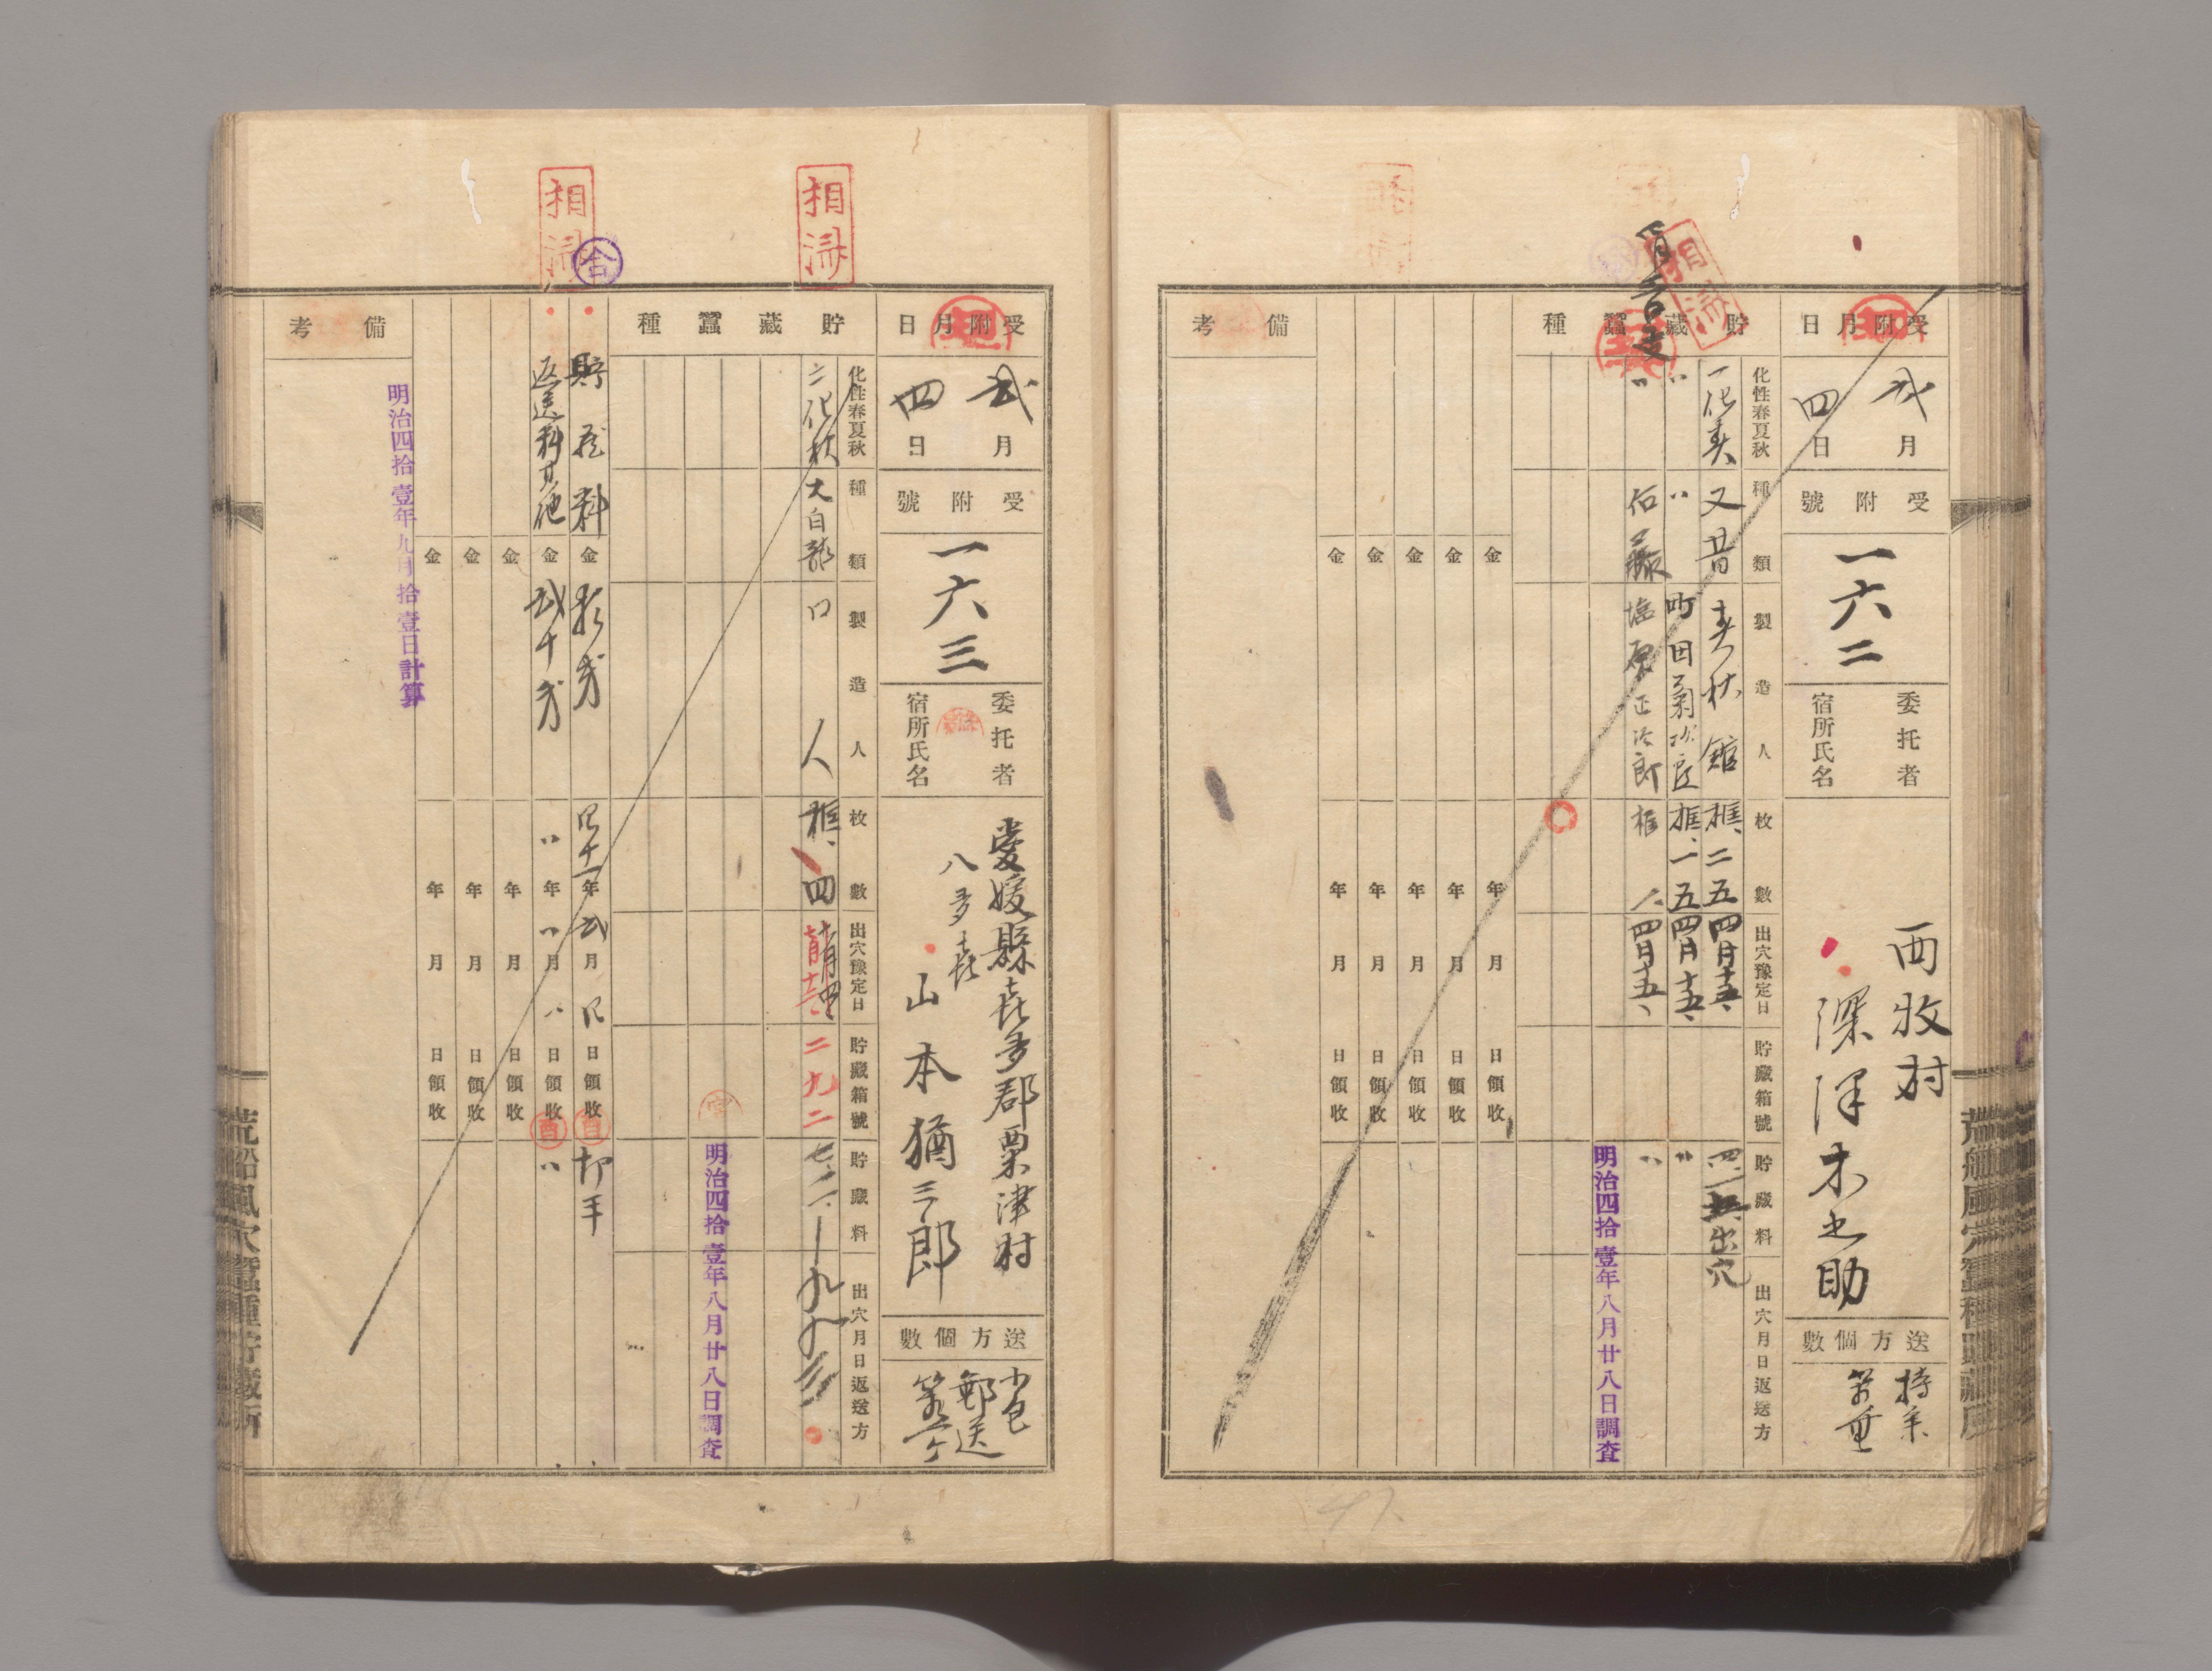 受附月日
弐月
四日
受附號
一六二
委托者
宿所氏名
西牧村
深澤木之助
送方個數
持参
貯藏蠶種
化性春夏秋
種類
製造人
枚數
出穴豫定日
貯藏箱號
貯藏料
出穴月日返送方
一化春 又昔 春秋館 框、二五 四月十五、 出穴
〃 〃 町田菊次郎 框、一五 四月十五、 〃
〃 佐藤 塩原正次郎 框 四月十五、 〃
明治四拾壹年八月廿八日調査
相済
金 年 月 日領收
金 年 月 日領收
金 年 月 日領收
金 年 月 日領收
金 年 月 日領收
備考
荒船風穴蠶種貯藏所
受附月日
弐月
四日
受附號
一六三
委托者
宿所氏名
愛媛縣喜多郡粟津村
八多喜
山本猶三郎
送方個數
小包
郵送
貯藏蠶種
化性春夏秋
種類
製造人
枚數
出穴豫定日
貯藏箱號
貯藏料
出穴月日返送方
二化秋 大白龍 人 框、四 二九二
相済
明治四拾壹年八月廿八日調査
貯蔵料 金 四十一年弐月 日領收
返送料其他 金弐十銭 〃年〃月〃日領收 〃
相済
合
金 年 月 日領收
金 年 月 日領收
金 年 月 日領收
明治四拾壹年九月拾壹日計算
備考
荒船風穴蠶種貯藏所